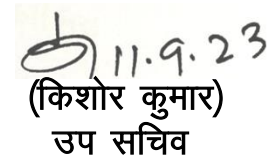 11.9.23
(किशोर कुमार)
उप सचिव